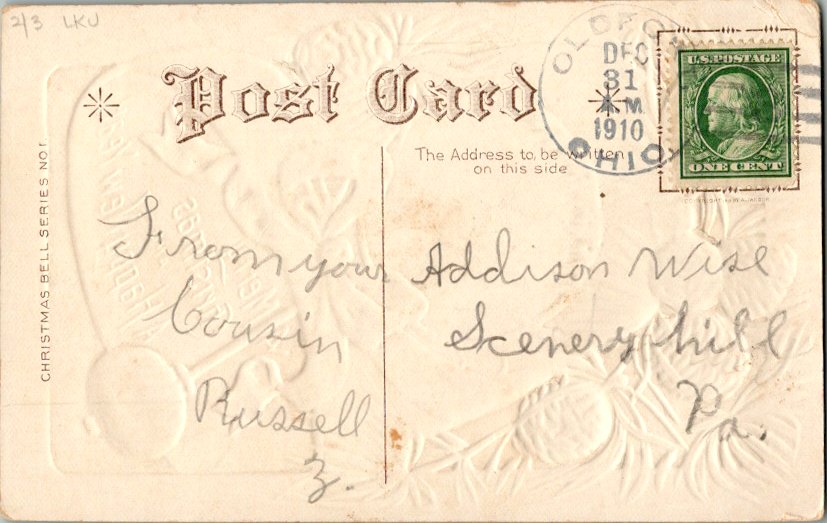 2/3 LKU
Post Card
DEC
31
AM
1910
OHIO
U.S. POSTAGE
ONE CENT
The Address to be written
on this side
CHRISTMAS BELL SERIES NO 1.
From your
Cousin
Russell
Z.
Addison Wise
Scenery hill
Pa.